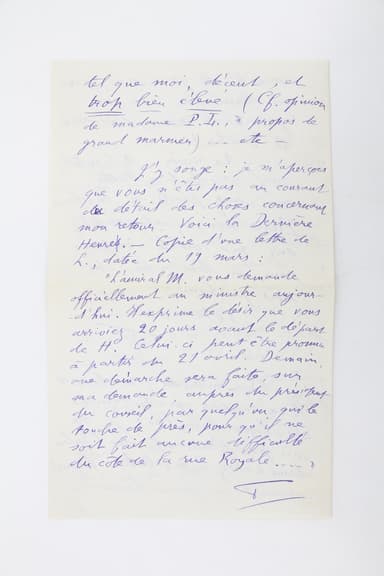 tel que moi, décent, et
trop bien élevé (Cf. opinion
de madame P.L., à propos de
grand marmen) ... etc –
J'y songe : je m'aperçois
que vous n'êtes pas au courant
du détail des choses concernant
mon retour. Voici la Dernière
Heure. – Copie d'une lettre de
L., datée du 19 mars :
"L'amiral M. vous demande
officiellement au ministre, aujour-
d'hui. Il exprime le désir que vous
arriviez 20 jours avant le départ
de H. Celui-ci peut être promu
à partir du 21 avril. Demain,
une démarche sera faite, sur
ma demande, auprès du président
du conseil, par quelqu'un qui le
touche de près, pour qu'il ne
soit fait aucune difficulté
du côté de la rue Royale .... "